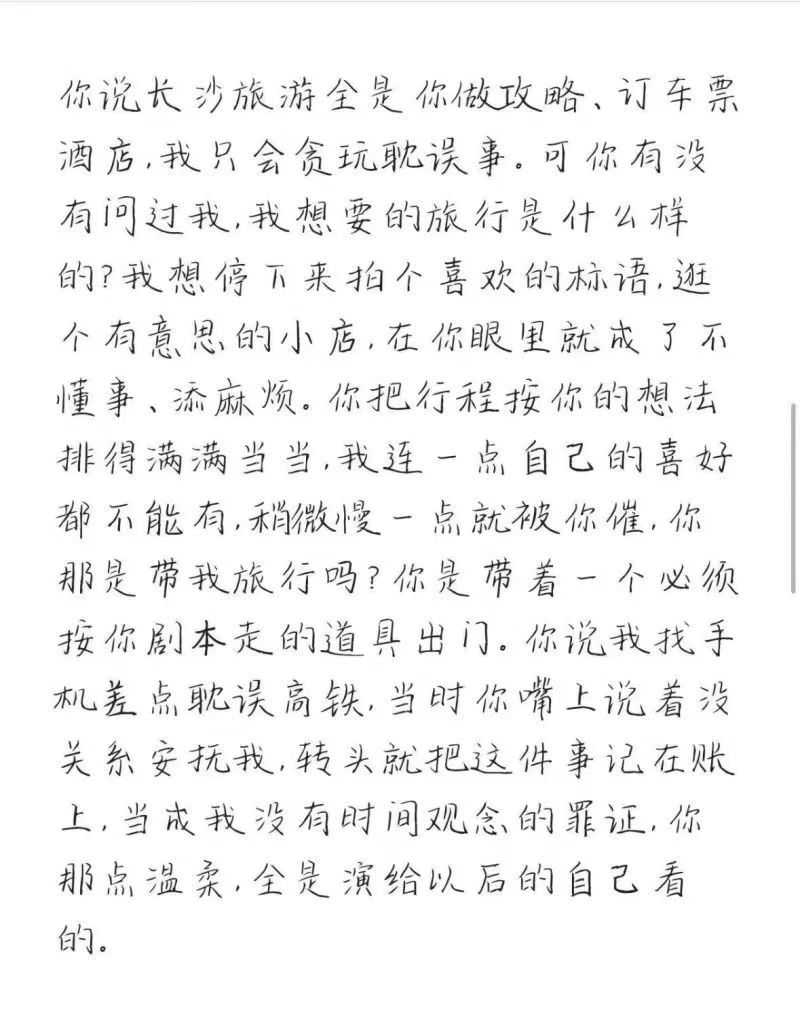 你说长沙旅游全是你做攻略、订车票
酒店,我只会贪玩耽误事。可你有没
有问过我,我想要的旅行是什么样
的?我想停下来拍个喜欢的标语,逛
个有意思的小店,在你眼里就成了不
懂事、添麻烦。你把行程按你的想法
排得满满当当,我连一点自己的喜好
都不能有,稍微慢一点就被你催,你
那是带我旅行吗?你是带着一个必须
按你剧本走的道具出门。你说我找手
机差点耽误高铁,当时你嘴上说着没
关系安抚我,转头就把这件事记在账
上,当成我没有时间观念的罪证,你
那点温柔,全是演给以后的自己看
的。